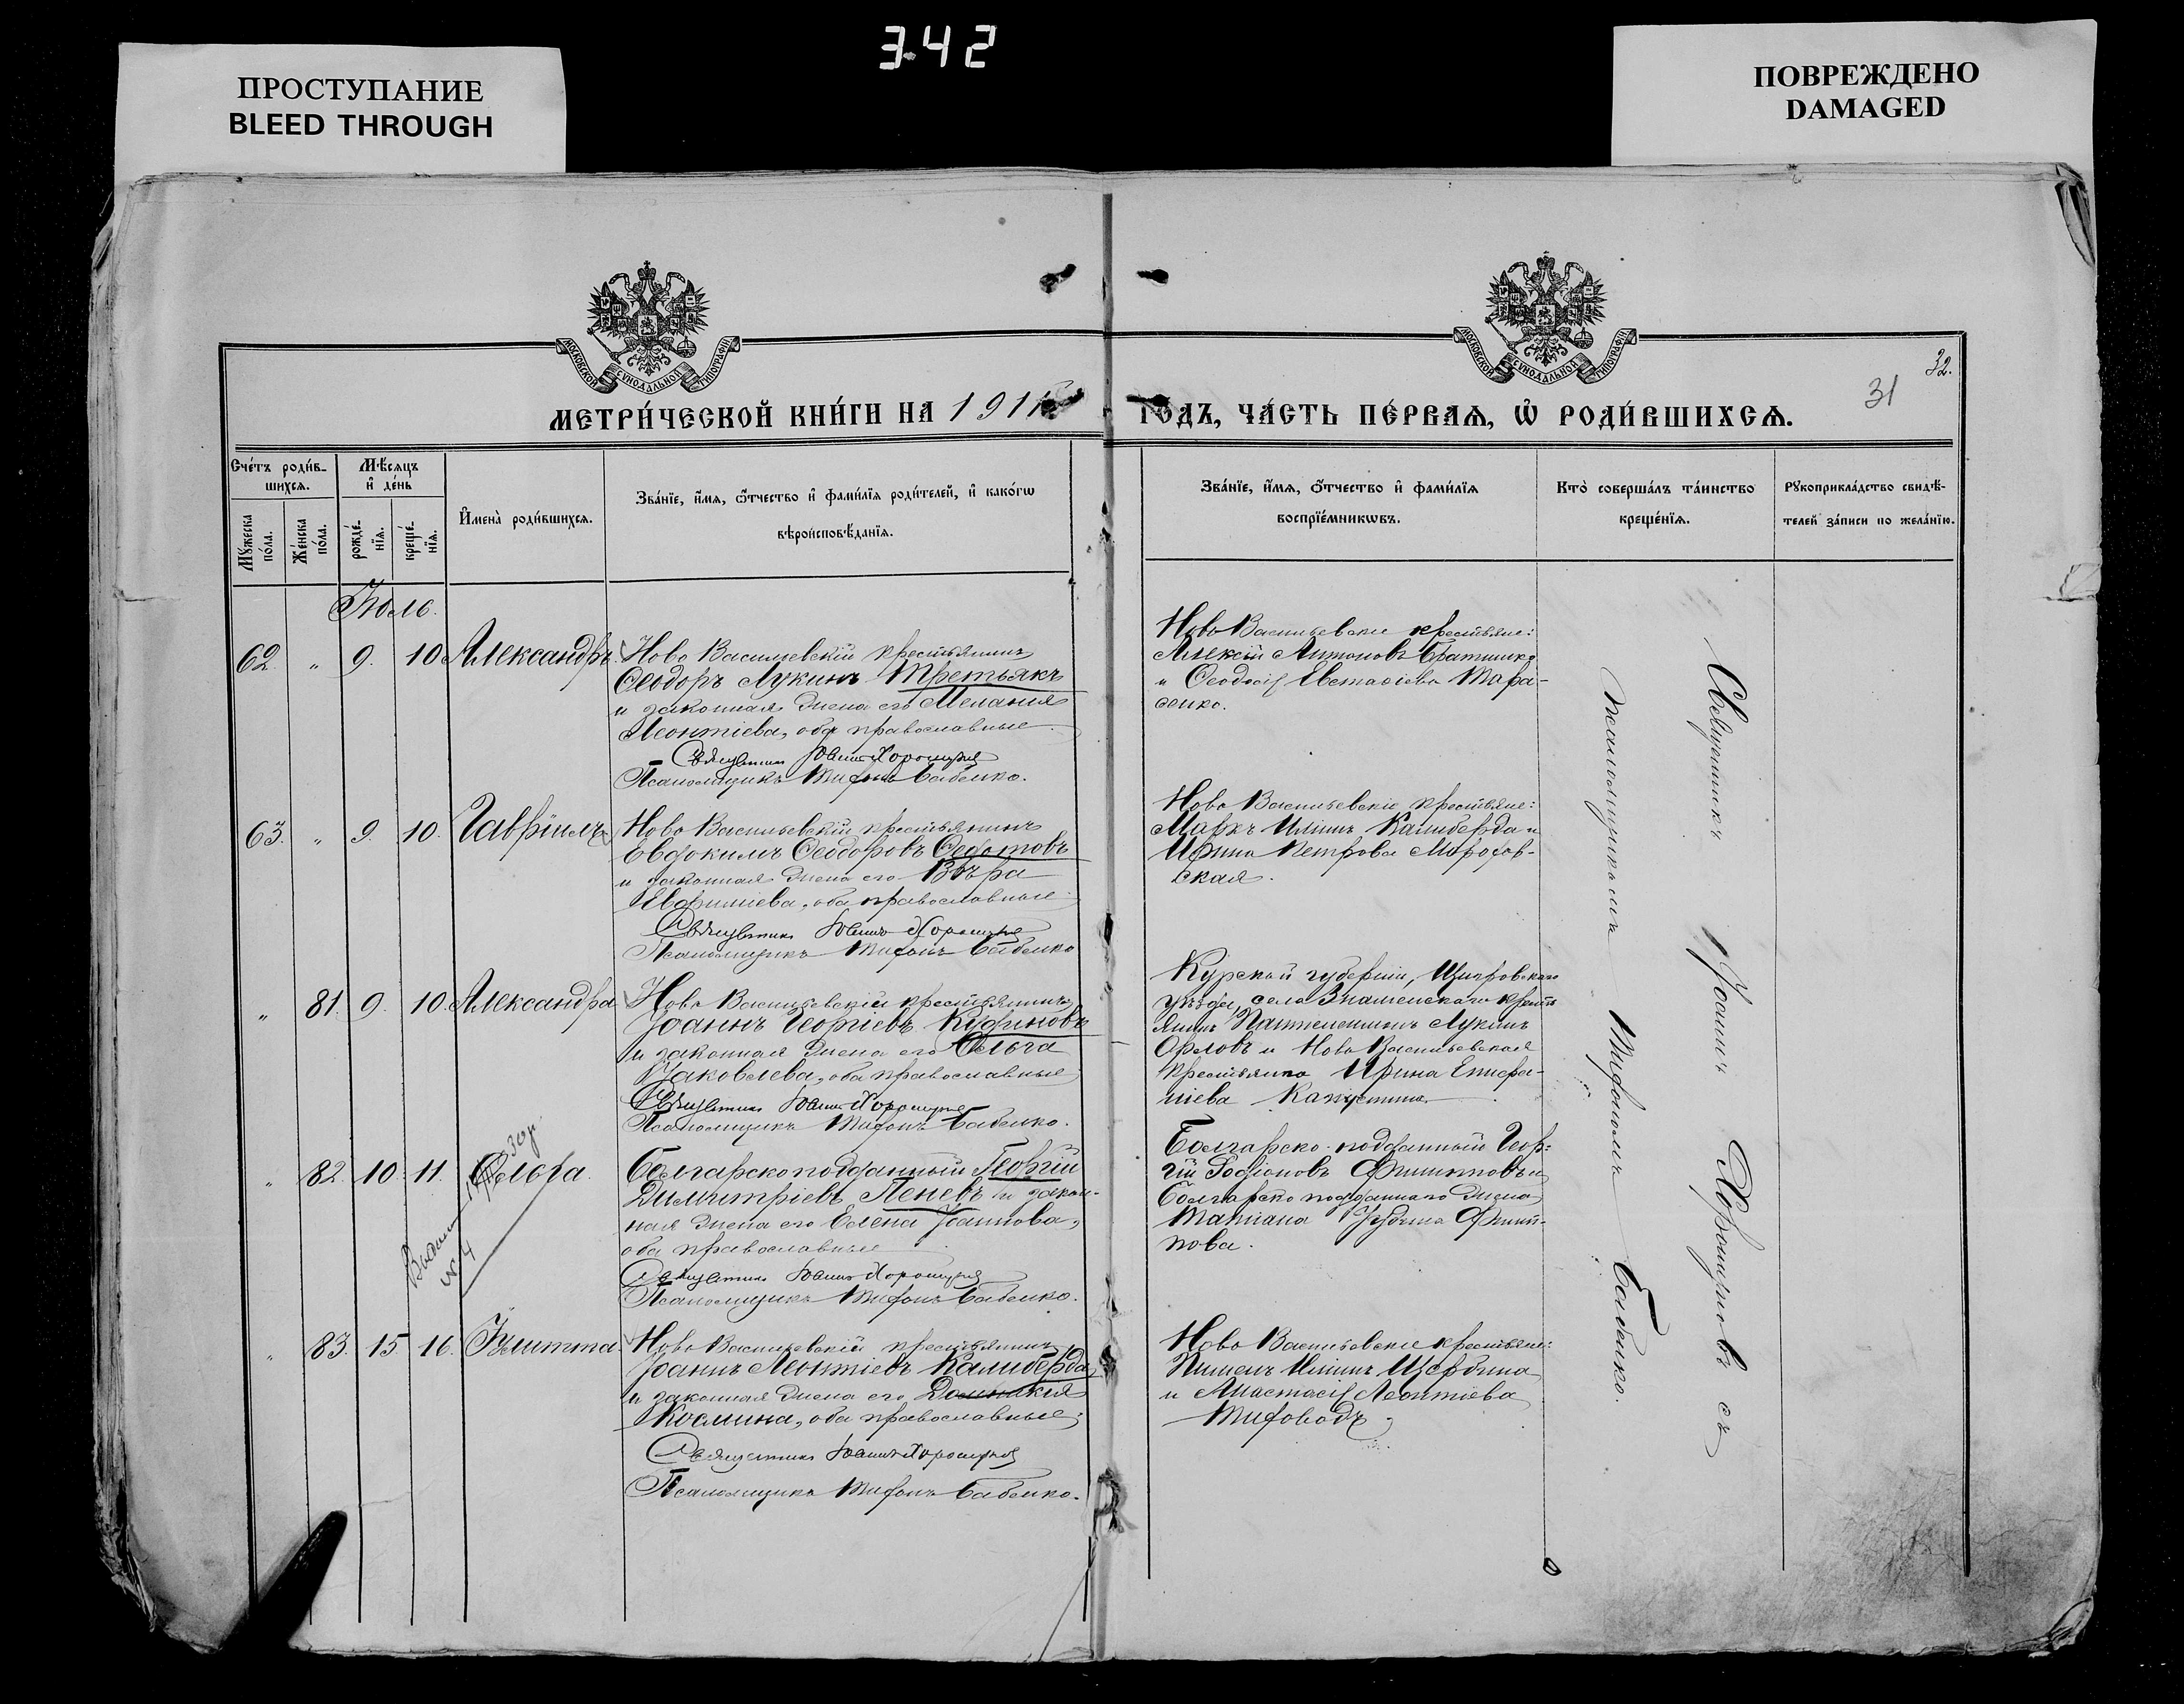 342
ПРОСТУПАНИЕ
BLEED THROUGH
ПОВРЕЖДЕНО
DAMAGED
МОСКОВСКОЙ СѴНОДАЛЬНОЙ ТИПОГРАФІИ
МОСКОВСКОЙ СѴНОДАЛЬНОЙ ТИПОГРАФІИ
32.
31
МЕТРИ́ЧЕСКОЙ КНИ́ГИ НА 191
ГОДЪ, ЧА́СТЬ ПЕ́РВАѦ, Ѡ҆ РОДИ́ВШИХСѦ.
Сче́тъ роди́в-
шихсѧ.
Мꙋ́жеска по́ла.
Же́нска по́ла.
Мѣ́сѧцъ
и҆ де́нь
рожде́-
нїѧ.
креще́-
нїѧ.
И҆мена̀ роди́вшихсѧ.
Зва́нїе, и҆́мѧ, ѻ҆́тчество и҆ фами́лїѧ роди́телей, и҆ како́гѡ
вѣроисповѣ́данїѧ.
Зва́нїе, и҆́мѧ, ѻ҆́тчество и҆ фами́лїѧ
воспрїе́мникѡвъ.
Кто̀ соверша́лъ та́инство
креще́нїѧ.
Рꙋкоприкла́дство свидѣ́-
телей за́писи по жела́нїю.
Іюль.
62. " 9. 10. Александръ.
Ново Васильевскій крестьянинъ
Ѳеодоръ Лукинъ Третьякъ
и законная жена его Меланія
Леонтіева, оба православные.
Священникъ Іоаннъ Хорошуновъ
Псаломщикъ Тифонъ Бабенко.
Ново Васильевскіе крестьяне:
Алексій Антоновъ
и Ѳеодосія Евстаѳіева Тара-
сенко.
63. " 9. 10. Гавріилъ
Ново Васильевскій крестьянинъ
Евдокимъ Ѳеодоровъ Ѳедотовъ
и законная жена его Вѣра
Евфиміева, оба православные
Священникъ Іоаннъ Хорошуновъ
Псаломщикъ Тифонъ Бабенко
Ново Васильевскіе крестьяне:
Маркъ Иліинъ Калиберда и
Ирина Петрова
ская.
" 81. 9. 10. Александра
Ново Васильевскій крестьянинъ
Іоаннъ Георгіевъ Куфиновъ
и законная жена его Ольга
Іаковлева, оба православные
Священникъ Іоаннъ Хорошуновъ
Псаломщикъ Тифонъ Бабенко.
Курской губерніи, Щигровскаго
уѣзда, села Знаменскаго кресть
янинъ Пантелеимонъ Лукинъ
Орловъ и Ново Васильевская
крестьянка Ирина Епифа-
ніева
" 82. 10. 11. Ольга.
№ 4
Болгарскоподданный Георгій
Димитріевъ Пеневъ и закон-
ная жена его Елена Іоаннова,
оба православные
Священникъ Іоаннъ Хорошуновъ
Псаломщикъ Тифонъ Бабенко.
Болгарско-подданный Геор-
гій Родіоновъ и
Болгарско подданнаго жена
Татіана
пова.
" 83. 15. 16. Іулитта.
Ново Васильевскій крестьянинъ
Іоаннъ Леонтіевъ Калиберда
и законная жена его
Космина, оба православные;
Священникъ Іоаннъ Хорошуновъ
Псаломщикъ Тифонъ Бабенко.
Ново Васильевскіе крестьяне:
Иліинъ Щербина
и Анастасія Леонтіева
Священникъ Іоаннъ Хорошуновъ съ
псаломщикомъ Тифономъ Бабенко.